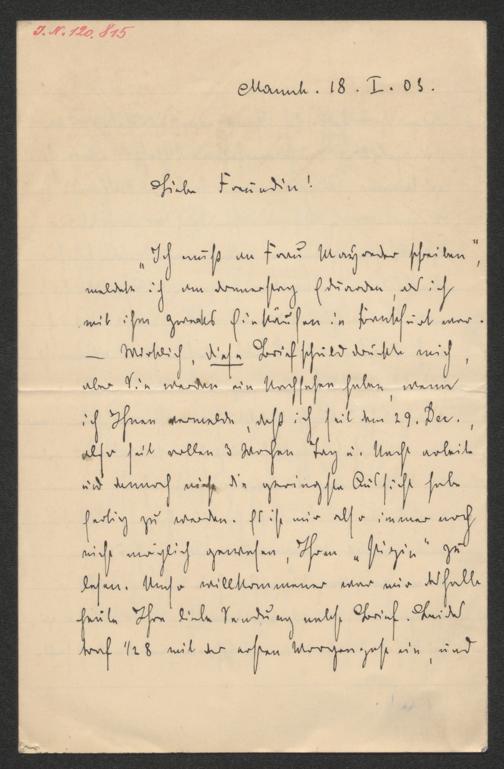 J.N. 120.815
Mannh. 18. I. 03.
Liebe Freundin!
„Ich muß an Frau Mayreder schreiben",
meldete ich am Donnerstag Eduarden, als ich
mit ihm zwecks Einkäufen in Frankfurt war.
— Wirklich, diese Briefschuld drückte mich,
aber Sie werden ein Nachsehen haben, wenn
ich Ihnen vermelde, daß ich seit dem 29. Dez.,
also seit vollen 3 Wochen Tag u. Nacht arbeite
und dennoch nicht die geringste Aussicht habe
fertig zu werden. Es ist mir also immer noch
nicht möglich gewesen, Ihren „ zu
lesen. Umso willkommener war mir deshalb
heute Ihre liebe Sendung nebst Brief. Beides
traf 1/2 8 mit der ersten Morgenpost ein, und